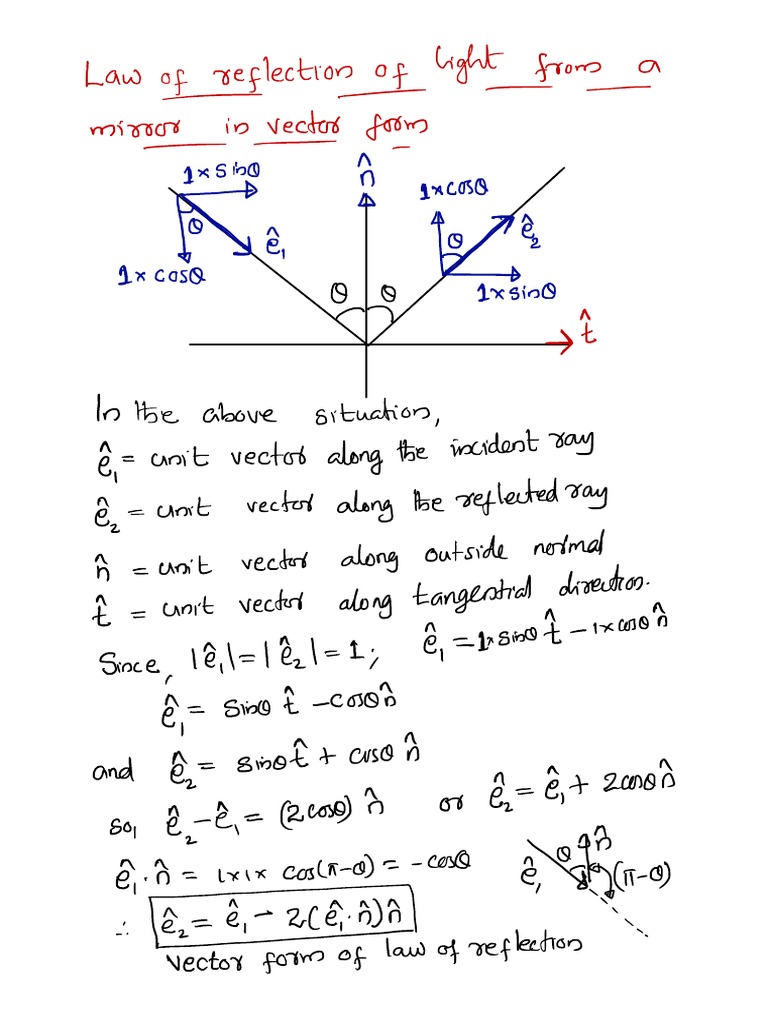 Law of reflection of light from a
mirror in vector form
1×sinθ
θ
1×cosθ
ê₁
n̂
θ θ
1×cosθ
θ
ê₂
1×sinθ
t̂
In the above situation,
ê₁ = unit vector along the incident ray
ê₂ = unit vector along the reflected ray
n̂ = unit vector along outside normal
t̂ = unit vector along tangential direction.
Since, |ê₁|=|ê₂|=1; ê₁ = 1×sinθ t̂ – 1×cosθ n̂
ê₁ = sinθ t̂ – cosθ n̂
and ê₂ = sinθ t̂ + cosθ n̂
so, ê₂ – ê₁ = (2cosθ) n̂ or ê₂ = ê₁ + 2cosθ n̂
ê₁·n̂ = 1×1× cos(π–θ) = –cosθ
ê₁ θ n̂ (π–θ)
∴ ê₂ = ê₁ – 2(ê₁·n̂)n̂
Vector form of law of reflection